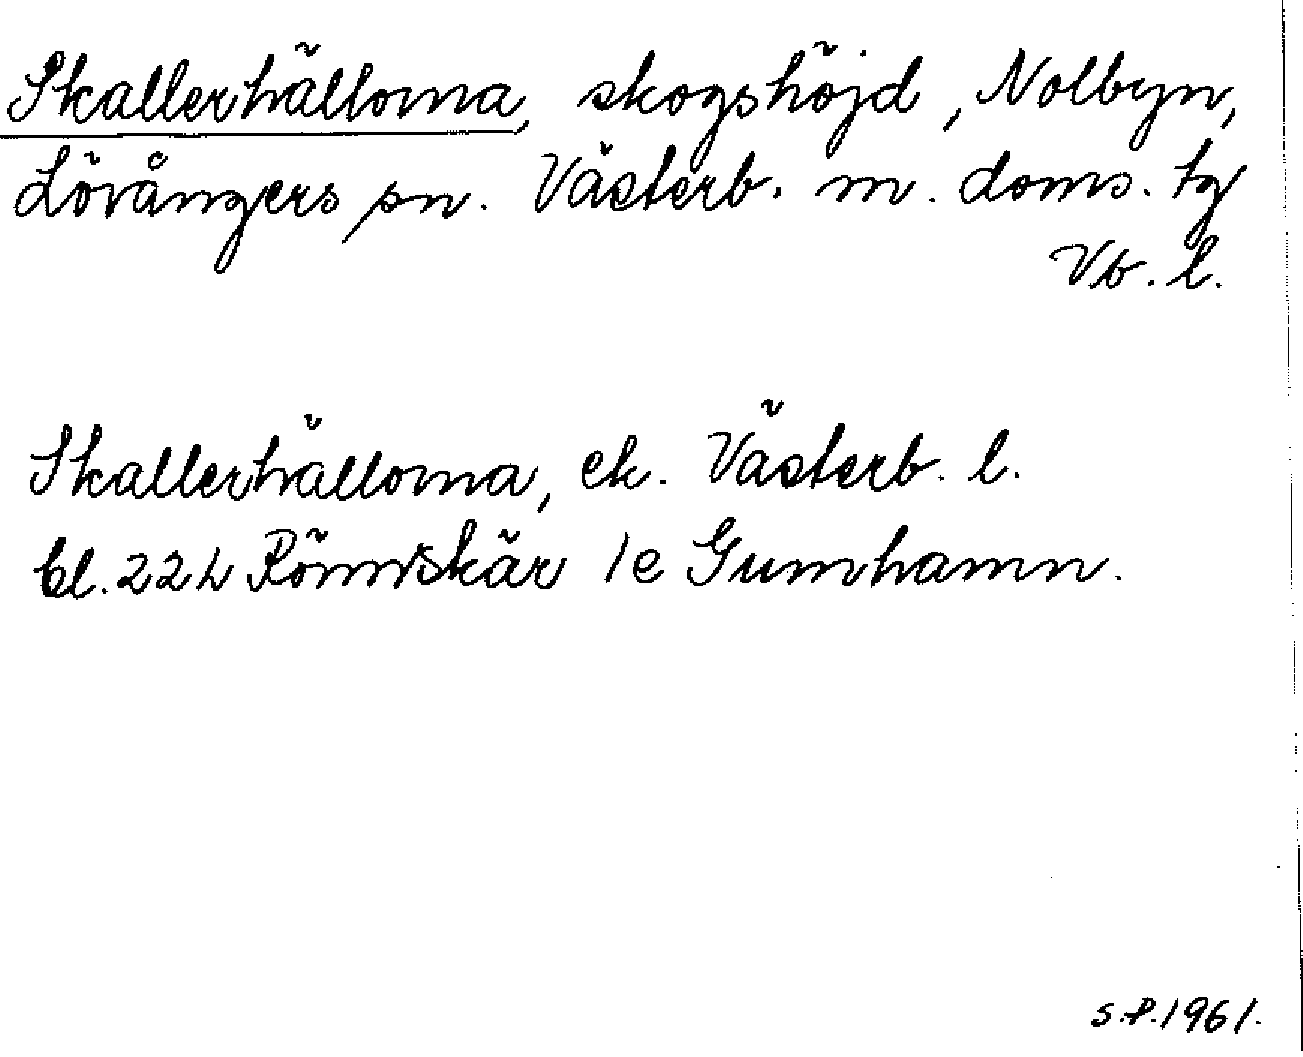 Skallerhällorna, skogshöjd, Nolbyn,
Lövångers sn. Västerb. m. doms. tg
Vb. l.
Skallerhällorna, ek. Västerb. l.
bl. 22 h Rönnskär 1e Gumhamn.
S.P. 1961.